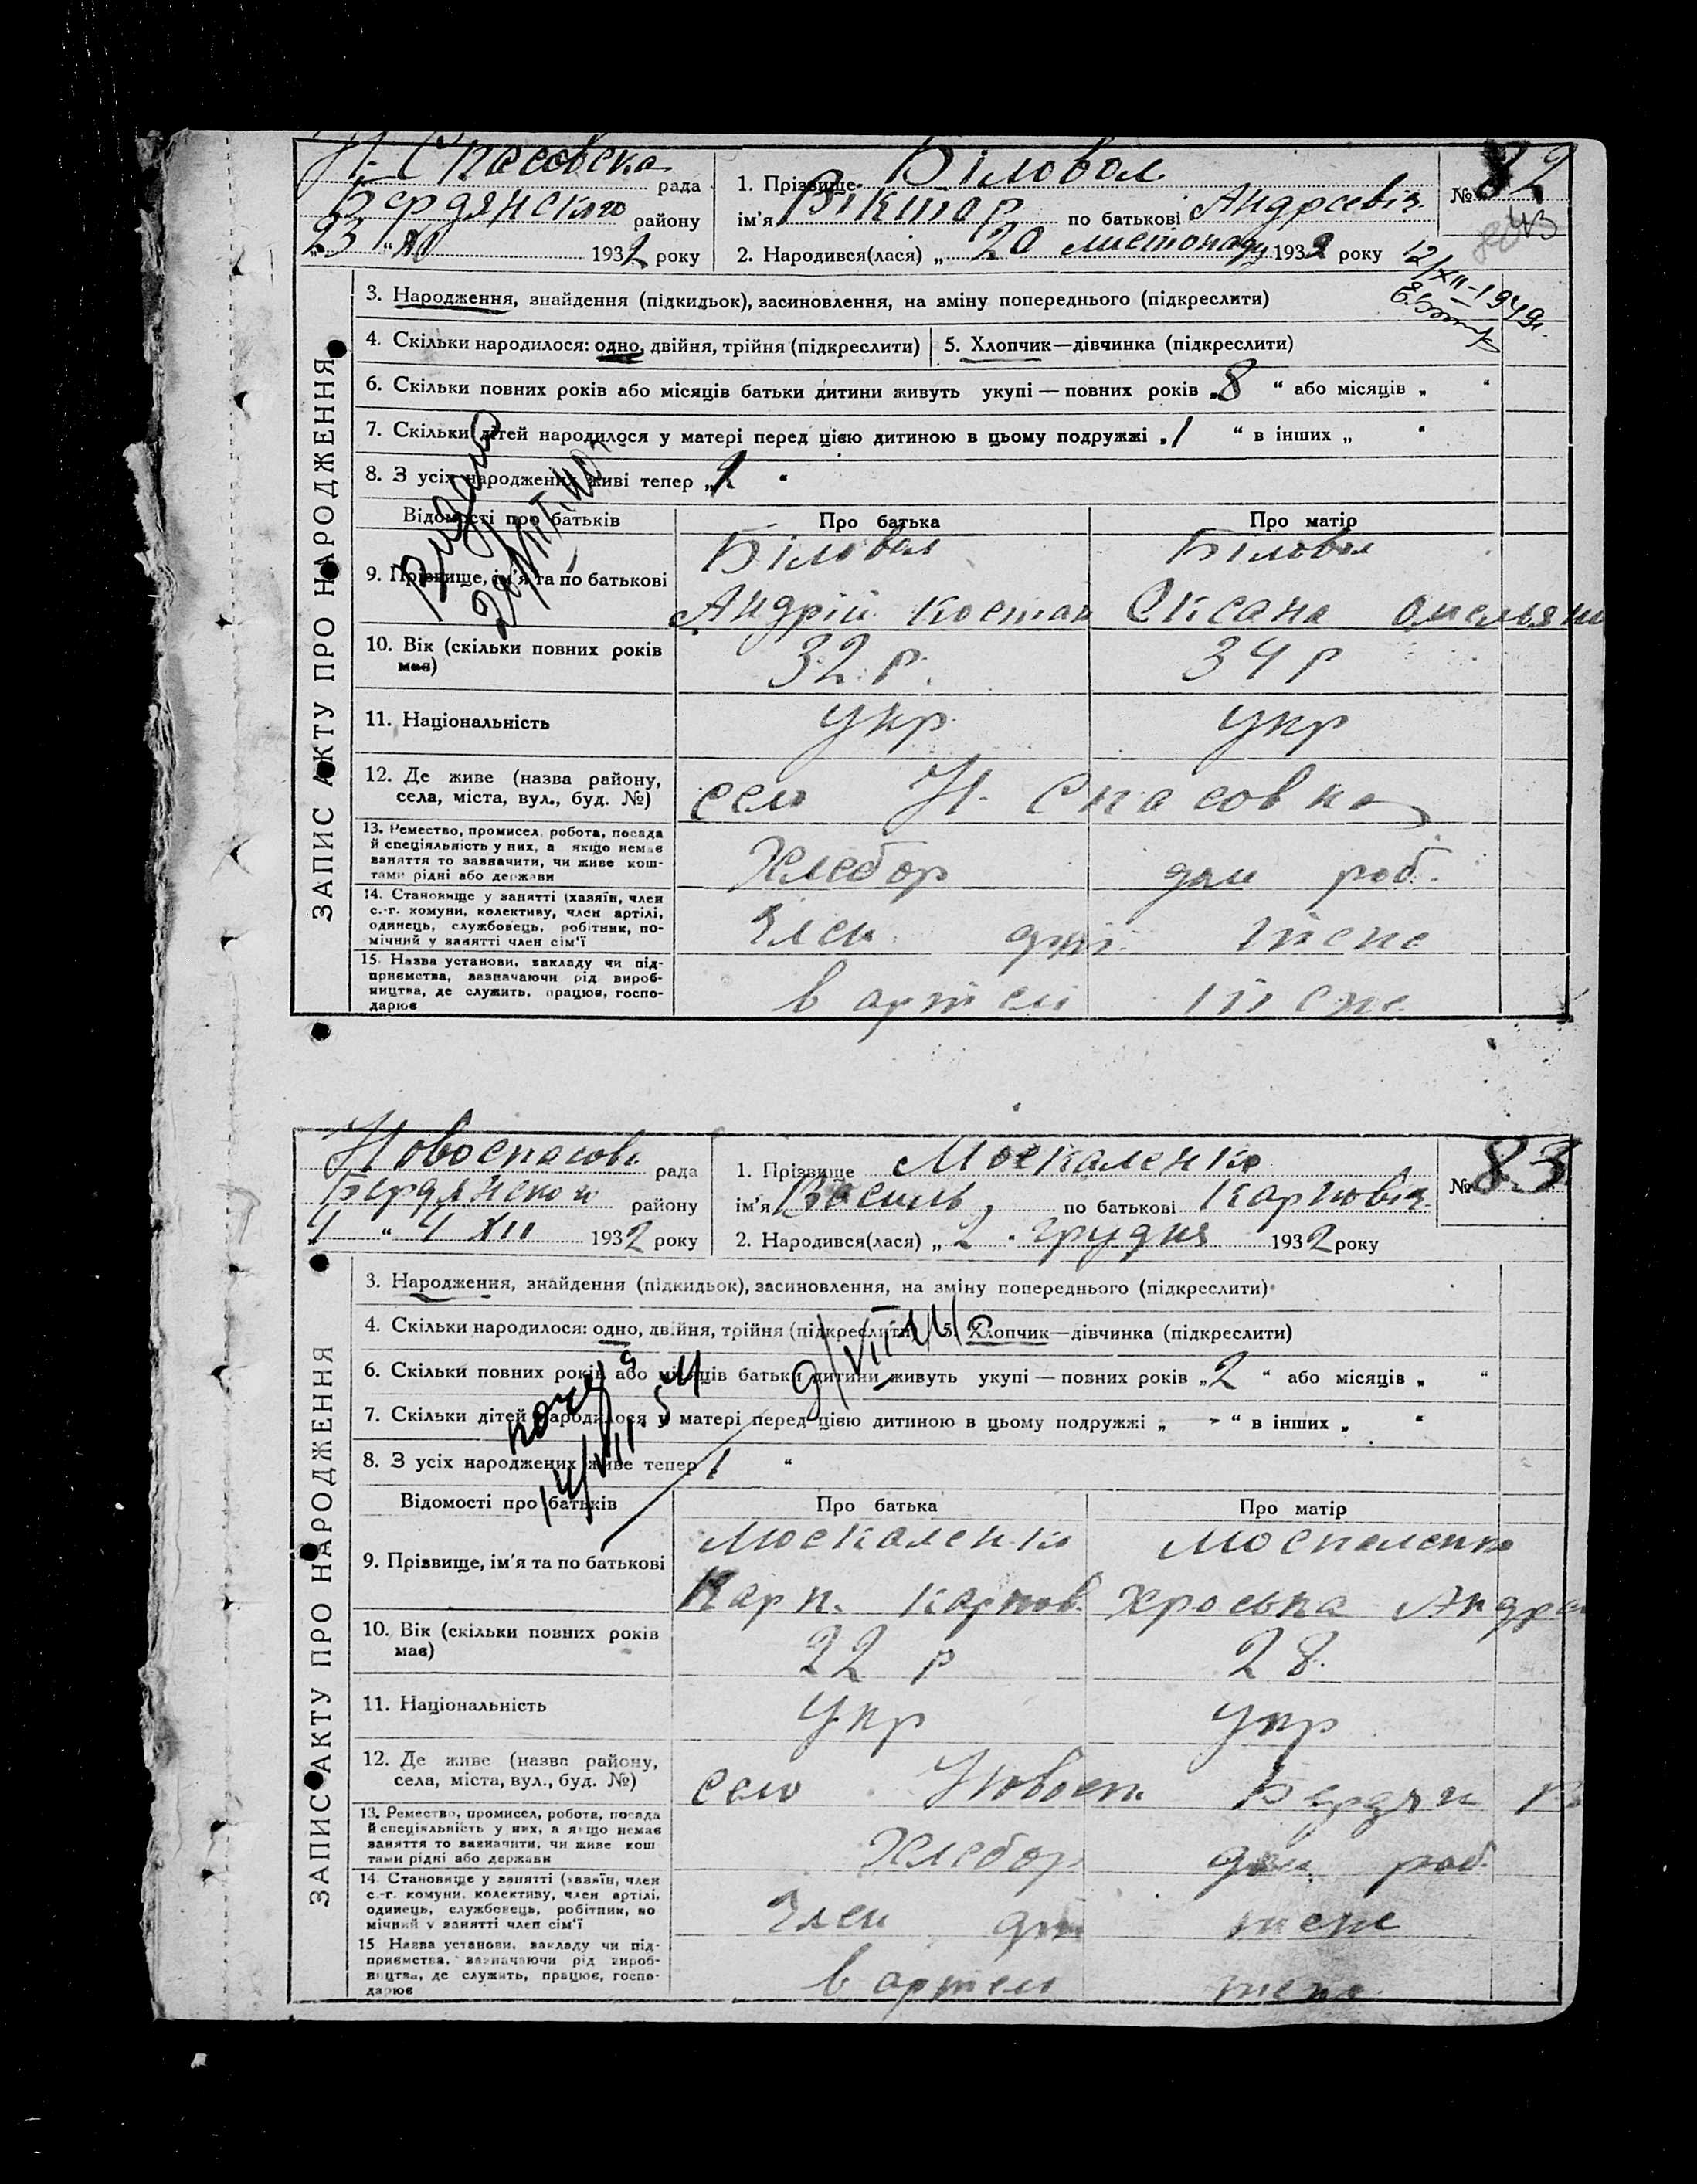 Н. Спасовска рада
Бердянского району
"23" XI 1932 року
1. Прізвище Біловол
ім'я Віктор по батькові Андрєєвіч
2. Народився(лася) „ 20 листопаду 1932 року
№ 82
12/XII-1949г.
ЗАПИС АКТУ ПРО НАРОДЖЕННЯ
3. Народження, знайдення (підкидьок), засиновлення, на зміну попереднього (підкреслити)
4. Скільки народилося: одно, двійня, трійня (підкреслити) 5. Хлопчик—дівчинка (підкреслити)
6. Скільки повних років або місяців батьки дитини живуть укупі — повних років „8 “ або місяців „ “
7. Скільки дітей народилося у матері перед цією дитиною в цьому подружжі „1 “ в інших „ “
8. З усіх народжених живі тепер „2 “
Видано
Відомості про батьків Про батька Про матір
Біловол Біловол
9. Прізвище, ім'я та по батькові
Андрій Костан Оксана Омельян
10. Вік (скільки повних років має) 32 р. 34 р
11. Національність укр укр
12. Де живе (назва району,
села, міста, вул., буд. №) село Н. Спасовка
13. Ремество, промисел, робота, посада
й спеціяльність у них, а якщо немає
заняття то зазначити, чи живе кош-
тами рідні або держави
Хлебор дом роб.
14. Становище у занятті (хазяїн, член
с.-г. комуни, колективу, член артілі,
одинець, службовець, робітник, по-
мічний у занятті член сім'ї
Член
15. Назва установи, закладу чи під-
приємства, зазначаючи рід вироб-
ництва, де служить, працює, госпо-
дарює
в артелі
Новоспасов рада
Бердянского району
" 4 XII 1932 року
1. Прізвище Москаленко
ім'я Василь по батькові Карповіч
2. Народився(лася) „ 2 “ грудня 1932 року
№ 83
ЗАПИС АКТУ ПРО НАРОДЖЕННЯ
3. Народження, знайдення (підкидьок), засиновлення, на зміну попереднього (підкреслити)
4. Скільки народилося: одно, двійня, трійня (підкреслити) 5. Хлопчик—дівчинка (підкреслити)
6. Скільки повних років або місяців батьки дитини живуть укупі — повних років „2 “ або місяців „ “
7. Скільки дітей народилося у матері перед цією дитиною в цьому подружжі „ - “ в інших „ “
8. З усіх народжених живе тепер „1 “
Відомості про батьків Про батька Про матір
Москаленко Москаленко
9. Прізвище, ім'я та по батькові
Карп. Карпов. Хроська Андре
10. Вік (скільки повних років
має) 22 р 28.
11. Національність Укр Укр
12. Де живе (назва району,
села, міста, вул., буд. №) село Новосп. Бердян Р
13. Ремество, промисел, робота, посада
й спеціяльність у них, а якщо немає
заняття то зазначити, чи живе кош
тами рідні або держави
Хлебор дом роб.
14. Становище у занятті (хазяїн, член
с.-г. комуни, колективу, член артілі,
одинець, службовець, робітник, по
мічний у занятті член сім'ї
Член
15 Назва установи, закладу чи під-
приємства, зазначаючи рід вироб-
ництва, де служить, працює, госпо-
дарює
в артели